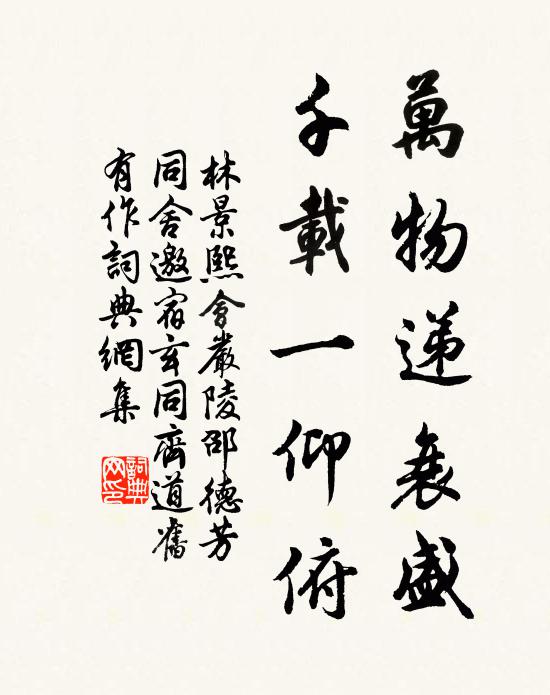 萬物递衰盛
千載一仰俯
林景熙會嚴陵邵德芳
同舍邀宿玄同齋道舊
有作詞典網集
詞典网印